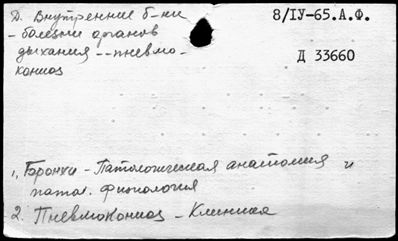 Д. Внутренние б-ни
8/IУ-65.А.Ф.
- болезни органов
дыхания -- пневмо-
кониоз
Д 33660
1, Бронхи - Патологическая анатомия и
патол. физиология
2. Пневмокониоз - Клиника